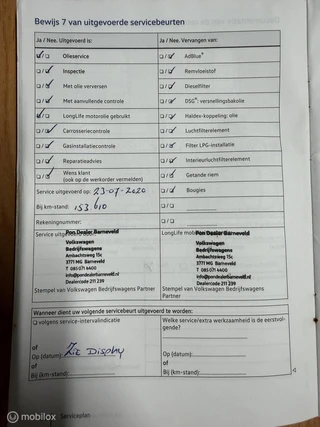 Bewijs 7 van uitgevoerde servicebeurten
Ja / Nee. Uitgevoerd is:
Ja / Nee. Vervangen van:
Olieservice
AdBlue®
Inspectie
Remvloeistof
Met olie verversen
Dieselfilter
Met aanvullende controle
DSG®: versnellingsbakolie
LongLife motorolie gebruikt
Haldex-koppeling: olie
Carrosseriecontrole
Luchtfilterelement
Gasinstallatiecontrole
Filter LPG-installatie
Reparatieadvies
Interieurluchtfilterelement
Wens klant
(ook op de werkorder vermelden)
Getande riem
Service uitgevoerd op: 23-07-2020
Bougies
Bij km-stand: 153 610
Rekeningnummer:
Service uitgevoerd door:
Pon Dealer Barneveld
Volkswagen
Bedrijfswagens
Ambachtsweg 15c
3771 MG Barneveld
T 085 071 4400
info@pondealerbarneveld.nl
Dealercode 211 239
Stempel van Volkswagen Bedrijfswagens Partner
LongLife
Pon Dealer Barneveld
Volkswagen
Bedrijfswagens
Ambachtsweg 15c
3771 MG Barneveld
T 085 071 4400
info@pondealerbarneveld.nl
Dealercode 211 239
Stempel van Volkswagen Bedrijfswagens Partner
Wanneer dient uw volgende servicebeurt uitgevoerd te worden:
volgens service-intervalindicatie
of
Op (datum):
Zie Display
of
Bij (km-stand):
Welke service/extra werkzaamheid is de eerstvolgende?
of
Op (datum):
of
Bij (km-stand):
Serviceplan
© mobilox